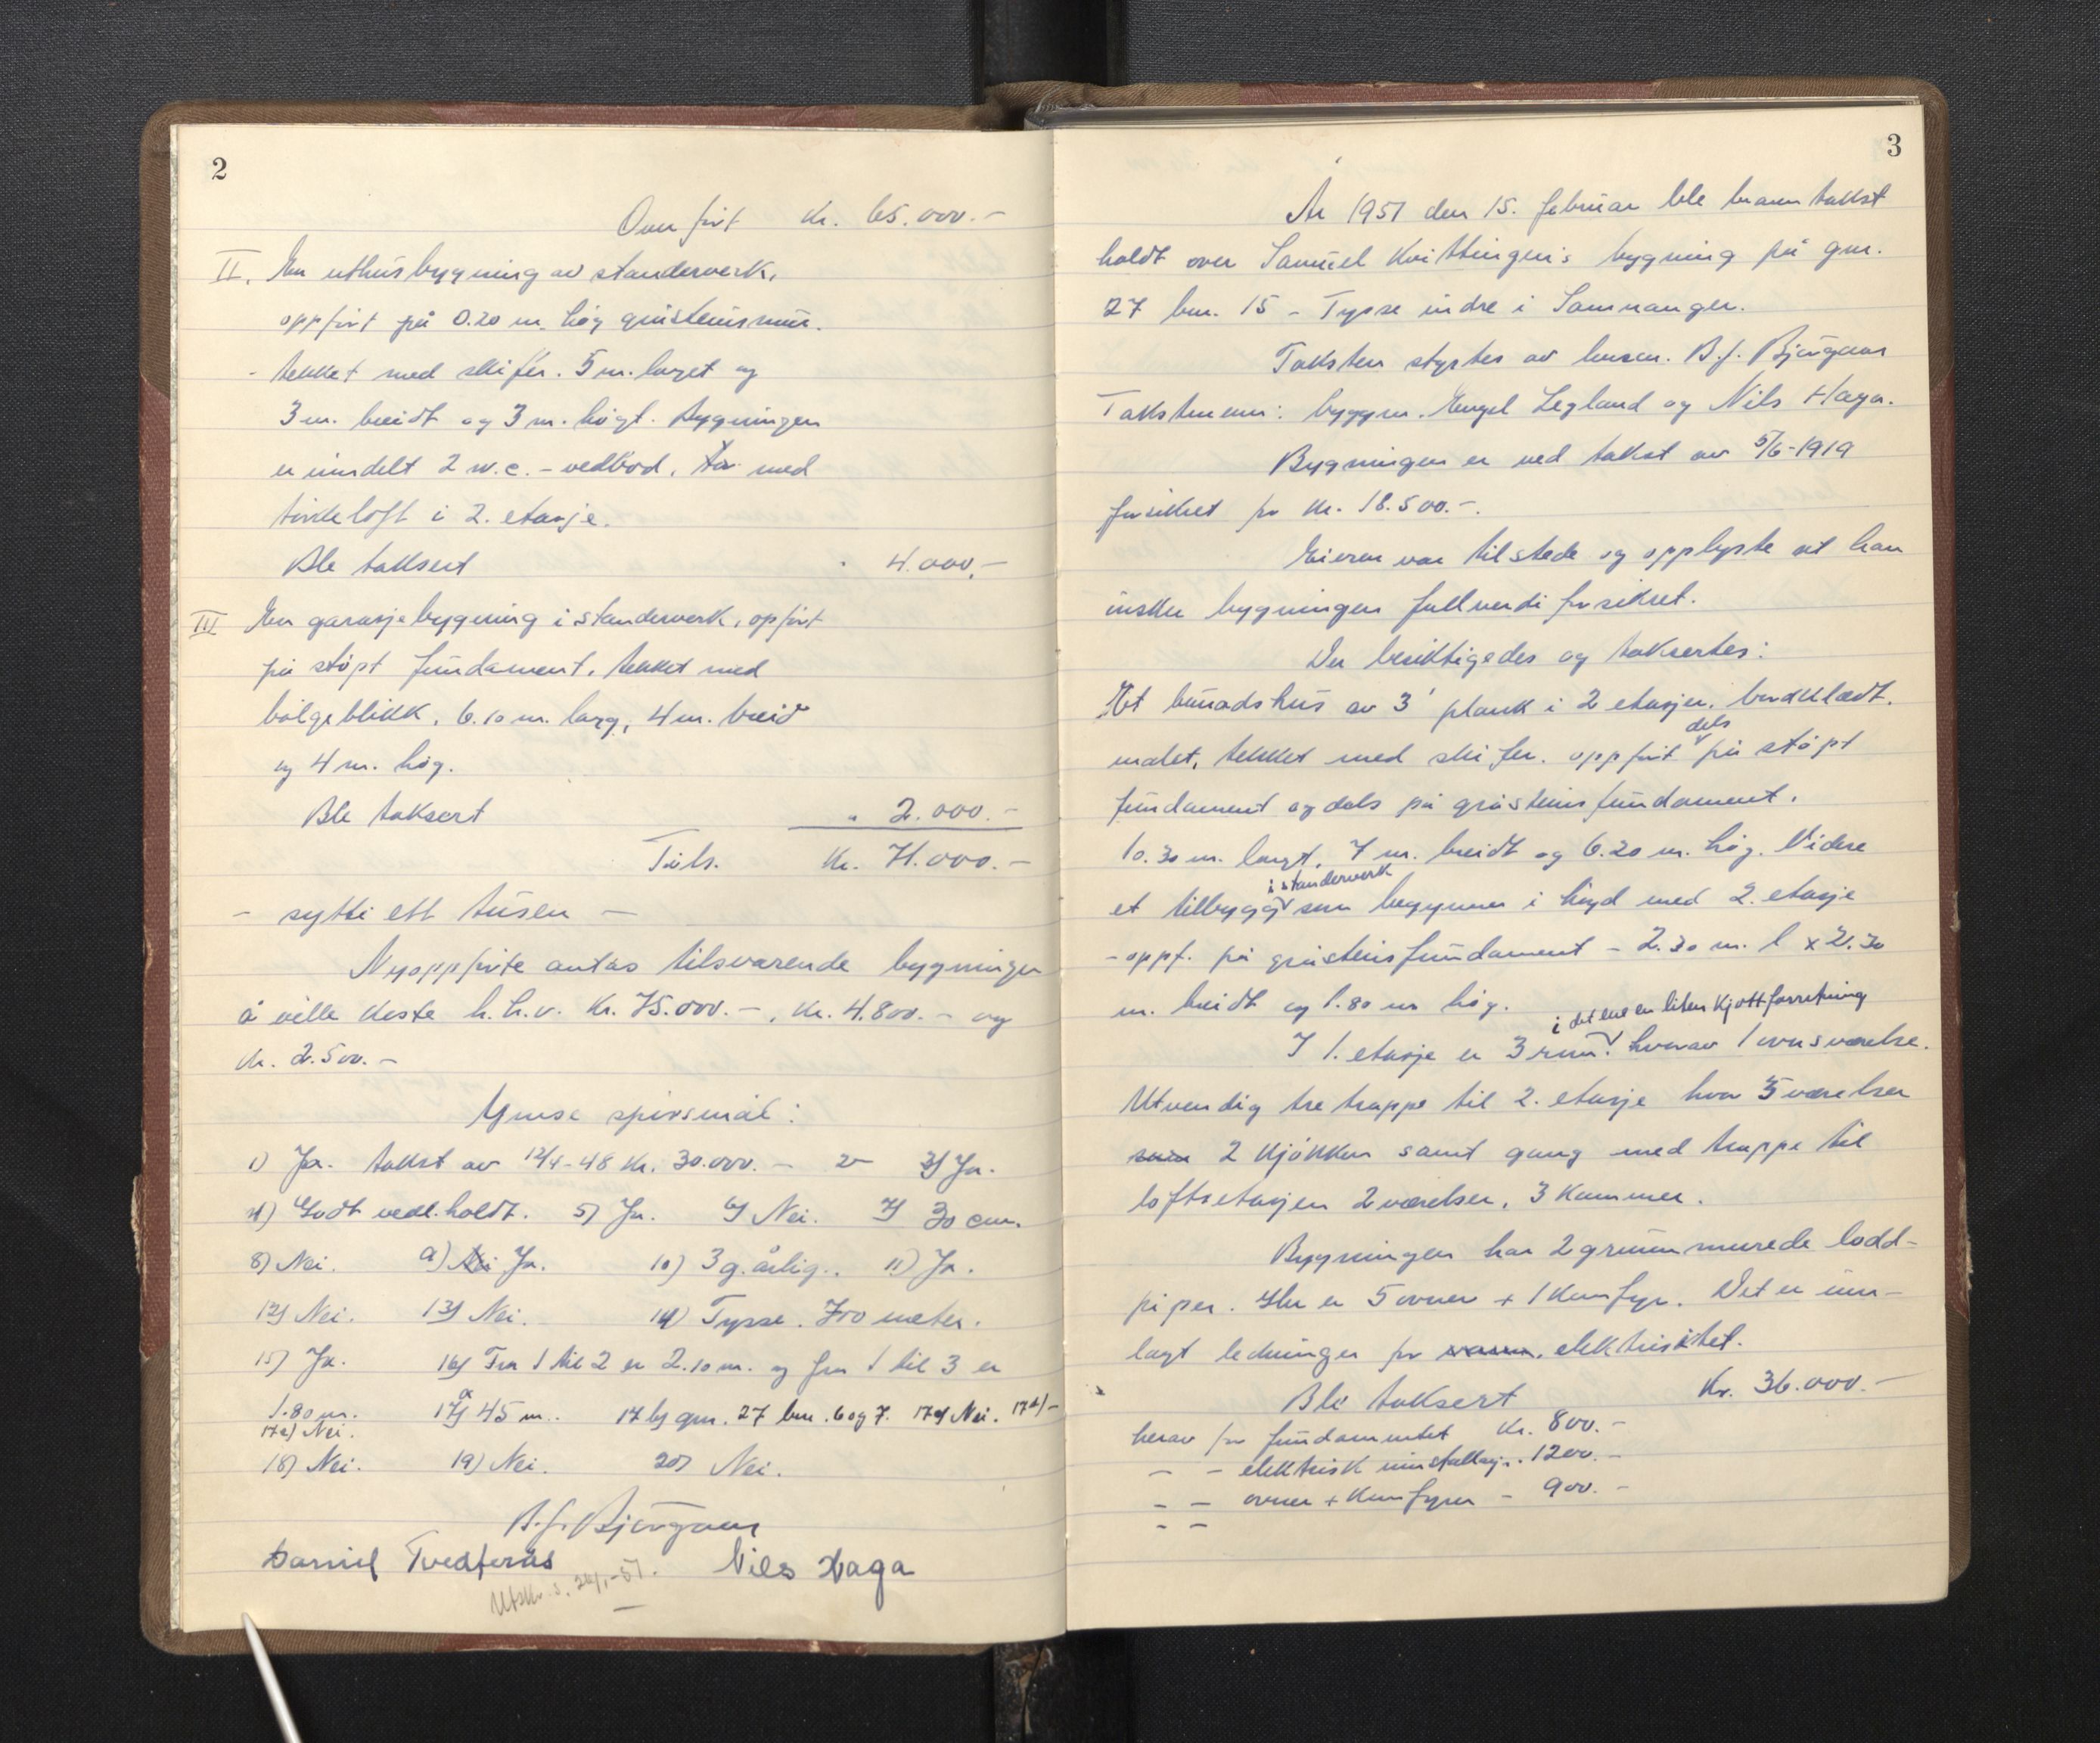 2
Overført Kr. 65.000.-
II. En uthusbygning av standerverk,
oppført på 0.20 m. høg gråsteinsmur.
- tekket med skifer. 5 m. langt og
3 m. breidt og 3 m. høgt. Bygningen
er inndelt 2 w.c. - vedbod, med
tørkeloft i 2. etasje.
Ble taksert " 4.000,-
III En garasjebygning i standerverk, oppført
på støpt fundament, tekket med
bølgeblikk, 6.10 m. lang, 4 m. breid
og 4 m. høg.
Ble taksert " 2.000.-
Tils. Kr. 71.000.-
- sytti ett tusen -
Nyoppførte antas tilsvarende bygninger
å ville koste h.h.v. Kr. 75.000.-, Kr. 4.800.- og
Kr. 2.500.-
Ymse spørsmål:
1) Ja. takst av 12/4-48 Kr. 30.000.- 2- 3) Ja.
4) Godt vedl.holdt. 5) Ja. 6) Nei. 7) 30 cm.
8) Nei. 9) Nei Ja. 10) 3 g. årlig. 11) Ja.
12) Nei. 13) Nei. 14) Tysse. 700 meter.
15) Ja. 16) Fra 1 til 2 er 2.10 m. og fra 1 til 3 er
1.80 m. 17a) 45 m. 17b) gnr. 27 bnr. 6 og 7. 17c) Nei. 17d) -
17e) Nei.
18) Nei. 19) Nei. 20) Nei.
B.J. Bjørgaas
Daniel Tvedterås Nils Haga
Utskr. s. 26/1-51.
3
År 1951 den 15. februar ble branntakst
holdt over Samuel Kvittingen's bygning på gnr.
27 bnr. 15 - Tysse indre i Samnanger.
Taksten styrtes av lensm. B.J. Bjørgaas
Takstmenn: byggm. Engel Legland og Nils Haga.
Bygningen er ved takst av 5/6-1919
forsikret for Kr. 18.500.-.
Eieren var tilstede og opplyste at han
ønsker bygningen fullverdiforsikret.
Der besiktigedes og taksertes:
Et bunadshus av 3" plank i 2 etasjer, bordkledt.
malet, tekket med skifer. oppført dels på støpt
fundament og dels på gråsteinsfundament.
10.30 m. langt, 7 m. breidt og 6.20 m. høg. Videre
et tilbygg i standerverk som begynner i høyd med 2. etasje
- oppf. på gråsteinsfundament - 2.30 m. l x 2.30
m. breidt og 1.80 m høg.
I 1. etasje er 3 rum. i det ene en liten kjøttforretning hvorav 1 ovnsværelse.
Utvendig tre trappe til 2. etasje hvor 5 værelser
samt 2 kjøkken samt gang med trappe til
loftsetasjen 2 værelser, 3 kammer.
Bygningen har 2 grunnmurede lodd-
piper. Her er 5 ovner + 1 komfyr. Det er inn-
lagt ledninger for vann. elektrisitet.
Ble taksert Kr. 36.000.-
herav for fundamentet Kr. 800.-
- - elektrisk installasj. - 1200.-
- - ovner + komfyren - 900.-
- -